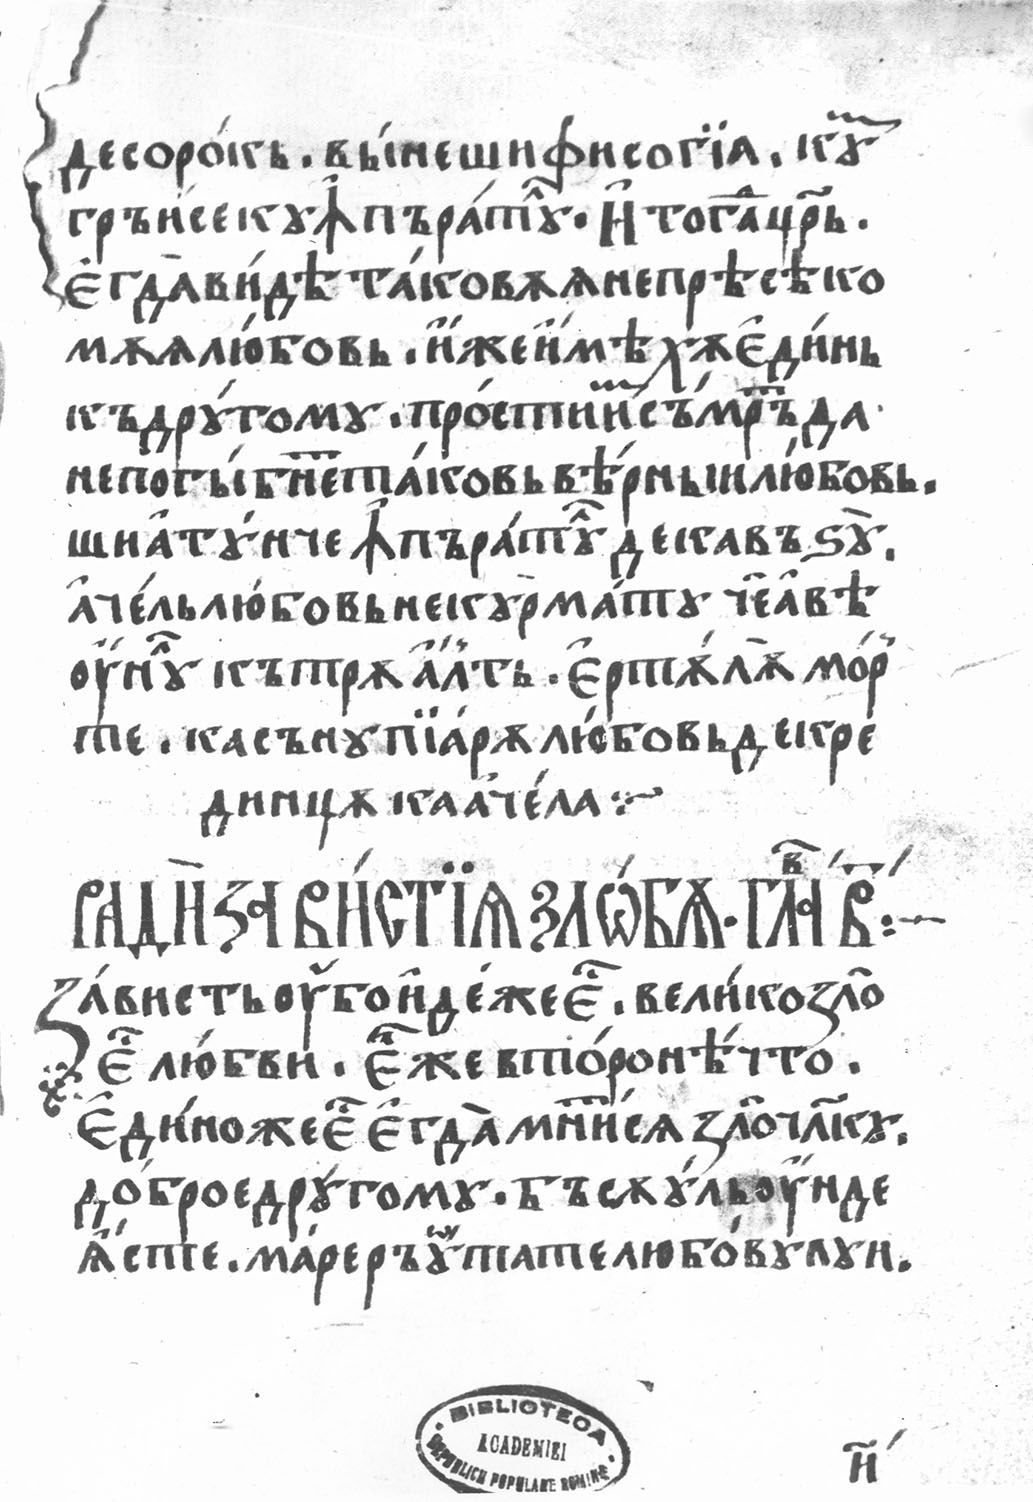 десоро́къ. вы́нешифисогїа. кꙋⷨ
гръи́секꙋꙟпъра́тꙋⷧ. и҆тогдⷶа цр҃ь.
є҆гда̀ви́дѣ та́ковѫѧнепрѣсѣко
мѫѧлю́бовь. и҆́жеи҆мѣхѫє҆ди́нь
къдрꙋ́гомꙋ. прости́и́ⷯсъмрⷮъ́да
непогы́бнеⷮта́ковьвѣ́рныилю́бовь.
шиа҆тꙋ́нче ꙟпъра́тꙋⷧ декавъѕꙋ̀.
а҆че́льлю́бовьнекꙋрма́тꙋ че҆а҆вѣ
оу҆́нꙋⷧ кътрѫ а҆́лть. є҆ртѫ́лѫ мо́р
те. касънꙋпїа́рѫлю́бовьдекре
динцѫ каа҆че́ла
ради҆ зави́стїѧ злѡ́бѧ. глⷡ҇а в҃
за́вистьоу҆боиде́жеє҆ⷭ҇. вели́козло̀
є҆ⷭ҇ лю́бви. є҆ⷤже вто́ронѣ́что.
є҆ди́ножеє҆ⷭ҇ є҆гда̀мни́ⷮсѧ зло̀чл҃кꙋ.
до́броедрꙋ́гомꙋ. бъсѫꙋ́льоу҆́нде
ꙗ҆́сте. ма́реръꙋ҆ⷮта́телюбо́вꙋлꙋи.
BIBLIOTECA
ACADEMIEI
REPUBLICII POPULARE ROMINE
и҃